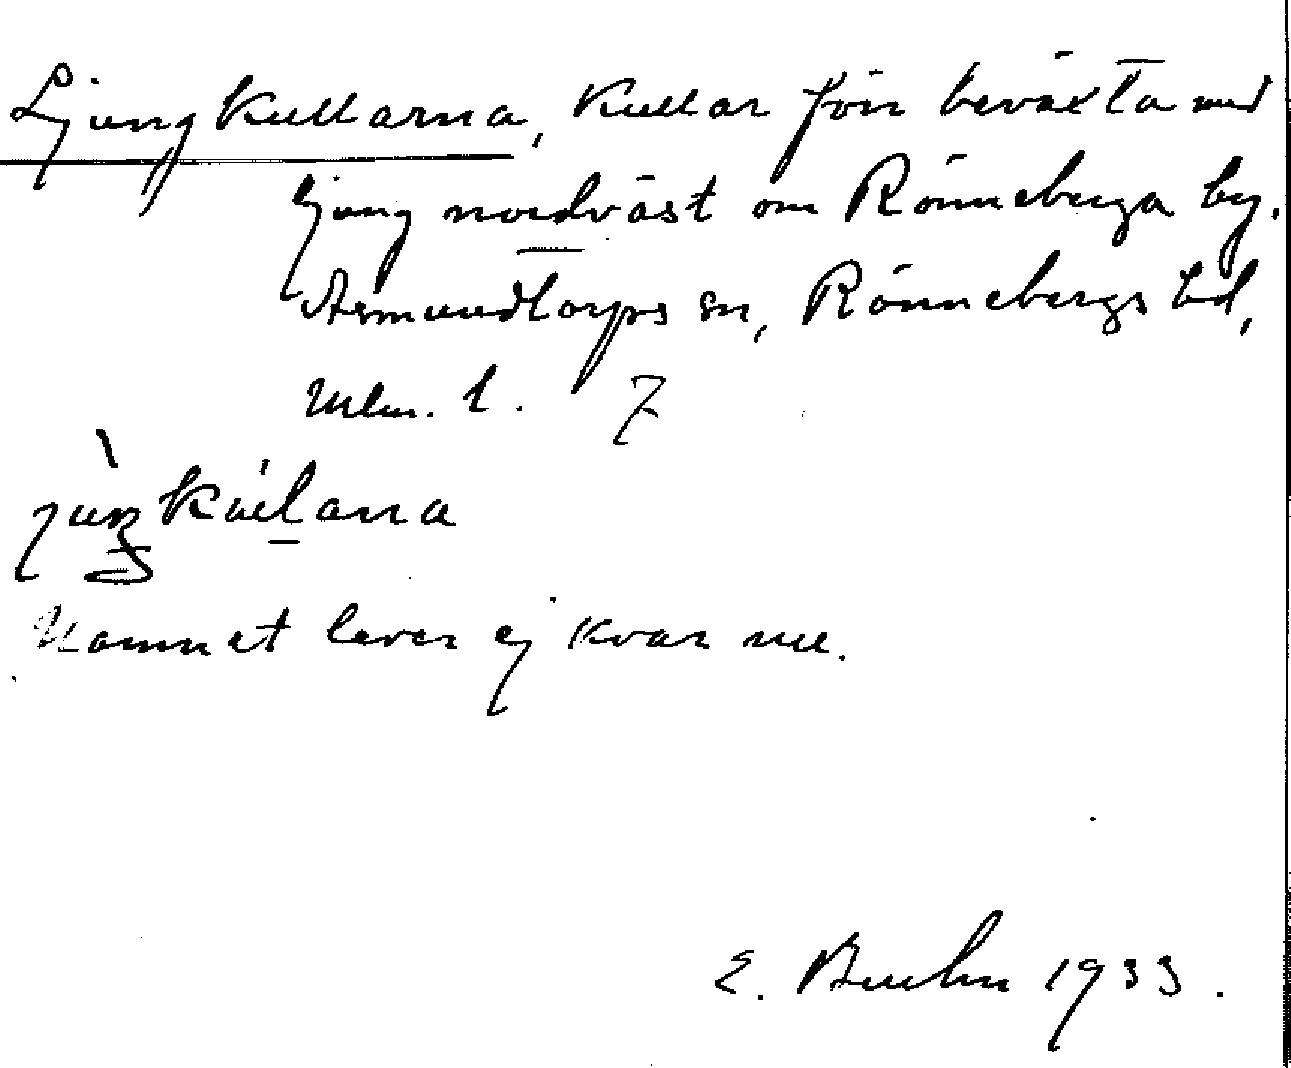 Ljungkullarna, kullar förr beväxta med
ljung nordväst om Rönneberga by.
Asmundtorps sn, Rönnebergs hd,
Mlm. l. 7
Namnet lever ej kvar nu.
E. Bruhn 1933.